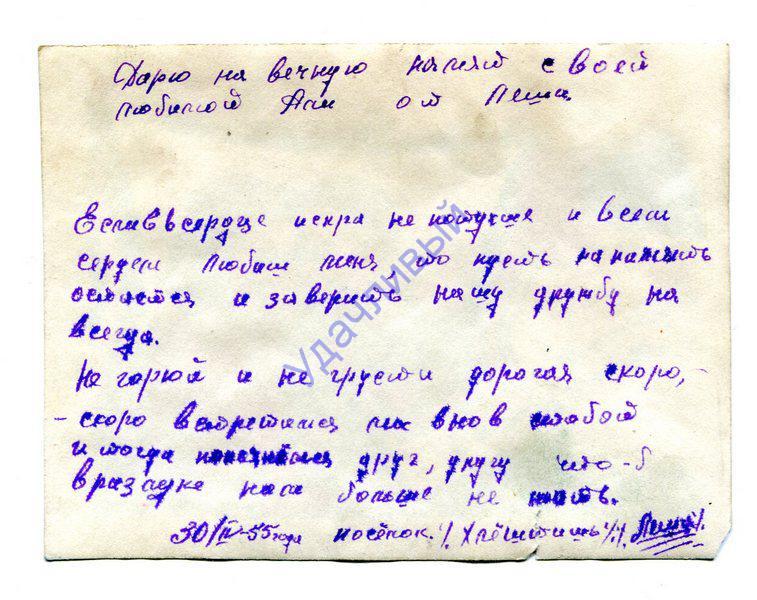 Дарю на вечную память своей
любимой Ани от Леши
Если в сердце искра не потухше и всем
сердцем любиш меня то пусть на память
остается и заверить нашу дружбу на
всегда.
Не горюй и не грусти дорогая скоро,-
-скоро встретимся мы внов стобой
и тогда друг, другу что-б
в разлуке нам больше не
30/IV-55 года посёлок.
Удачливый